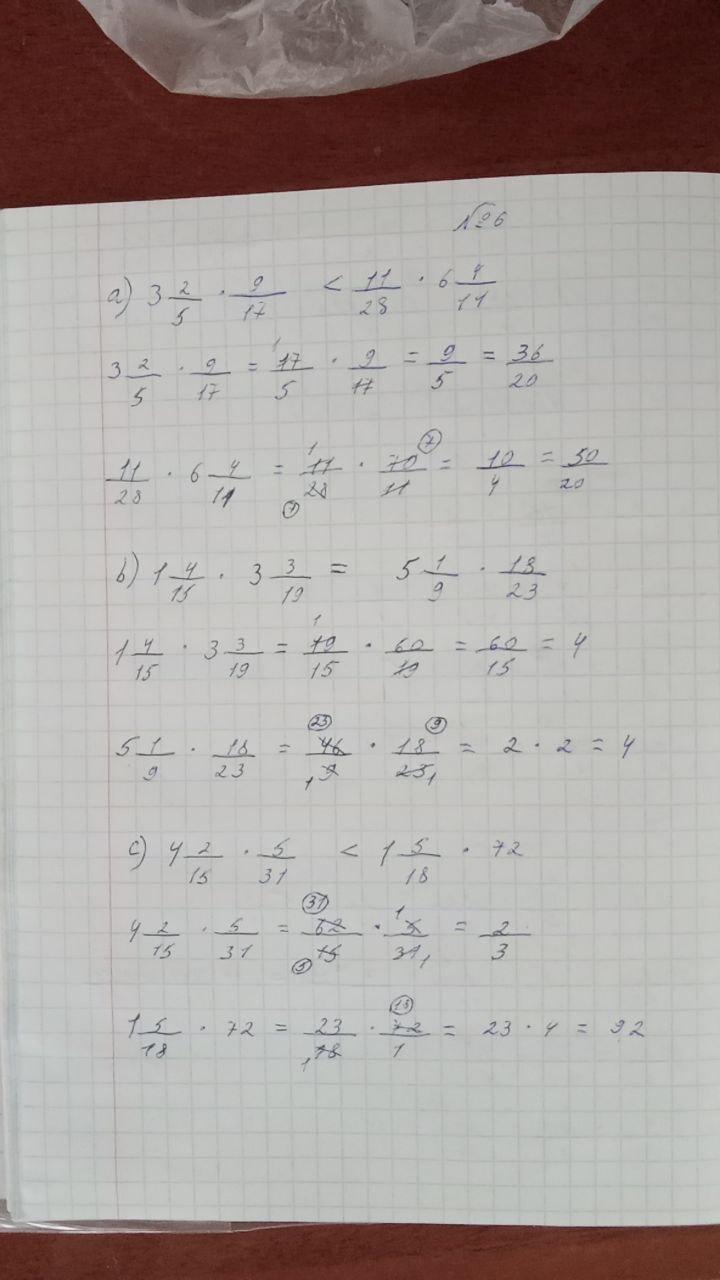 № 6
a) 3 2/5 · 9/17 < 11/28 · 6 4/11
3 2/5 · 9/17 = 17/5 · 9/17 = 9/5 = 36/20
11/28 · 6 4/11 = 11/28 · 70/11 = 10/4 = 50/20
b) 1 4/15 · 3 3/19 = 5 1/9 · 18/23
1 4/15 · 3 3/19 = 19/15 · 60/19 = 60/15 = 4
5 1/9 · 18/23 = 46/9 · 18/23 = 2 · 2 = 4
c) 4 2/15 · 5/31 < 1 5/18 · 72
4 2/15 · 5/31 = 62/15 · 5/31 = 2/3
1 5/18 · 72 = 23/18 · 72/1 = 23 · 4 = 92